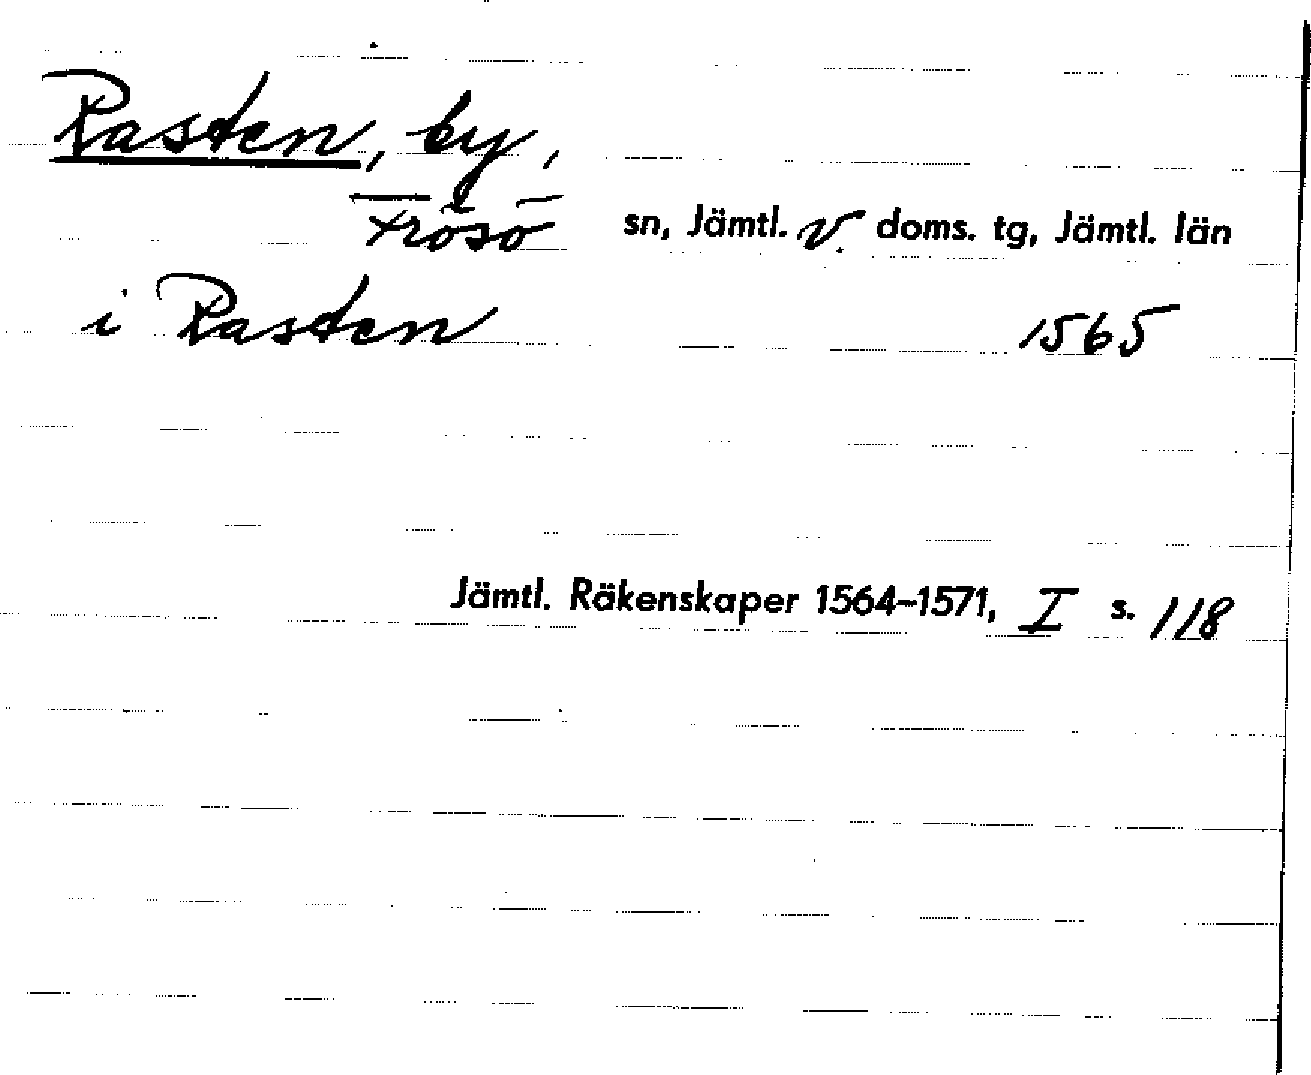 Rasten, by,
Frösö sn, Jämtl. v. doms. tg, Jämtl. län
i Rasten 1565
Jämtl. Räkenskaper 1564–1571, I s. 118